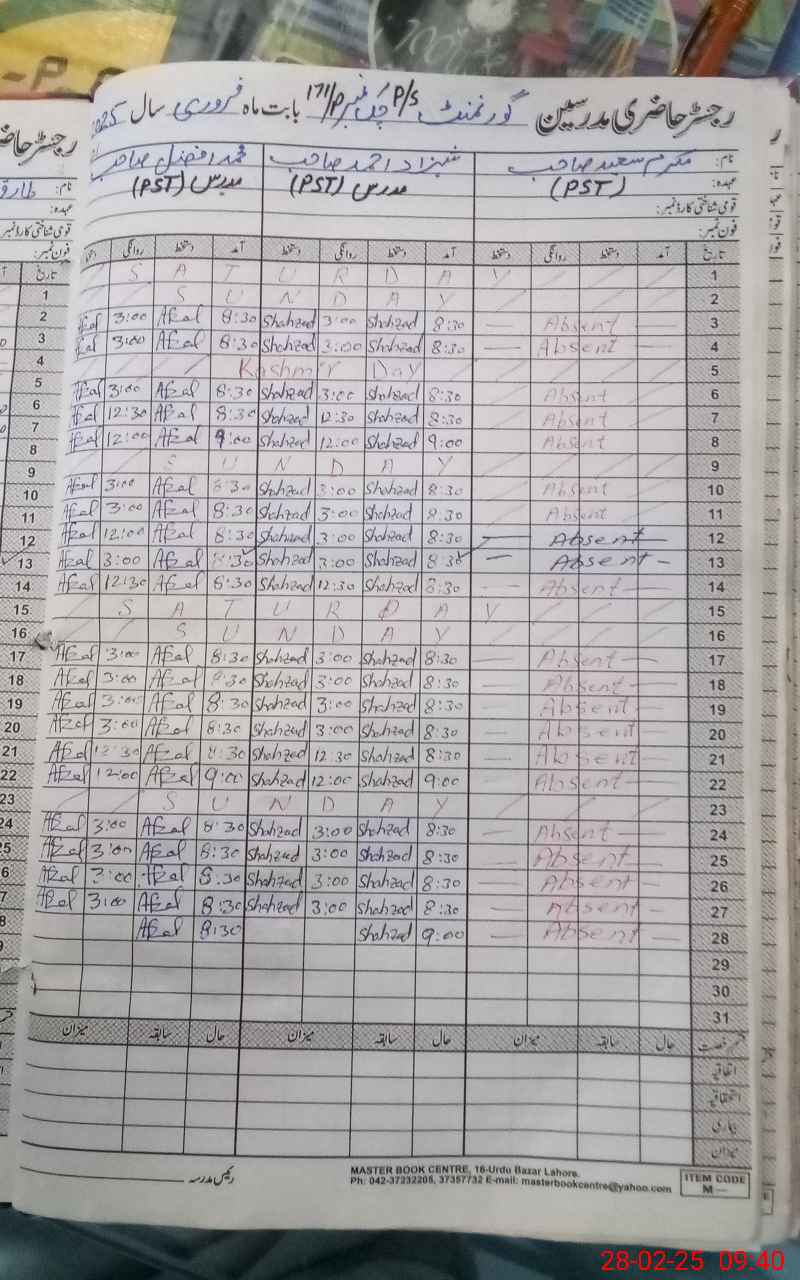 رجسٹر حاضری مدرسین گورنمنٹ P/S چک نمبر 171/P بابت ماہ فروری سال 2025
نام: مکرم سعید صاحب شہزاد احمد صاحب محمد افضل صاحب
عہدہ: (PST) مدرس (PST) مدرس (PST)
قومی شناختی کارڈ نمبر:
فون نمبر:
تاریخ آمد دستخط روانگی دستخط آمد دستخط روانگی دستخط آمد دستخط روانگی
S A T U R D A Y 1
S U N D A Y 2
3:00 Afzal 8:30 Shahzad 3:00 Shahzad 8:30 — Absent — 3
3:00 Afzal 8:30 Shahzad 3:00 Shahzad 8:30 — Absent — 4
Kashmir Day 5
Afzal 3:00 Afzal 8:30 Shahzad 3:00 Shahzad 8:30 Absent 6
Afzal 12:30 Afzal 8:30 Shahzad 12:30 Shahzad 8:30 Absent 7
Afzal 12:00 Afzal 9:00 Shahzad 12:00 Shahzad 9:00 Absent 8
S U N D A Y 9
Afzal 3:00 Afzal 8:30 Shahzad 3:00 Shahzad 8:30 Absent 10
Afzal 3:00 Afzal 8:30 Shahzad 3:00 Shahzad 8:30 Absent 11
Afzal 12:00 Afzal 8:30 Shahzad 3:00 Shahzad 8:30 — Absent — 12
Afzal 3:00 Afzal 8:30 Shahzad 3:00 Shahzad 8:30 — Absent — 13
Afzal 12:30 Afzal 8:30 Shahzad 12:30 Shahzad 8:30 — Absent — 14
S A T U R D A Y 15
S U N D A Y 16
Afzal 3:00 Afzal 8:30 Shahzad 3:00 Shahzad 8:30 — Absent — 17
Afzal 3:00 Afzal 8:30 Shahzad 3:00 Shahzad 8:30 — Absent — 18
Afzal 3:00 Afzal 8:30 Shahzad 3:00 Shahzad 8:30 — Absent — 19
Afzal 3:00 Afzal 8:30 Shahzad 3:00 Shahzad 8:30 — Absent — 20
Afzal 12:30 Afzal 8:30 Shahzad 12:30 Shahzad 8:30 — Absent — 21
Afzal 12:00 Afzal 9:00 Shahzad 12:00 Shahzad 9:00 — Absent — 22
S U N D A Y 23
Afzal 3:00 Afzal 8:30 Shahzad 3:00 Shahzad 8:30 — Absent — 24
Afzal 3:00 Afzal 8:30 Shahzad 3:00 Shahzad 8:30 — Absent — 25
Afzal 3:00 Afzal 8:30 Shahzad 3:00 Shahzad 8:30 — Absent — 26
Afzal 3:00 Afzal 8:30 Shahzad 3:00 Shahzad 8:30 — Absent — 27
Afzal 8:30 Shahzad 9:00 — Absent — 28
29
30
31
قسم رخصت حال سابقہ میزان حال سابقہ میزان حال سابقہ میزان
اتفاقیہ
استحقاقیہ
بیماری
میزان
رئیس مدرسہ
MASTER BOOK CENTRE, 16-Urdu Bazar Lahore.
Ph: 042-37232205, 37357732 E-mail: masterbookcentre@yahoo.com
ITEM CODE
M—
28-02-25 09:40